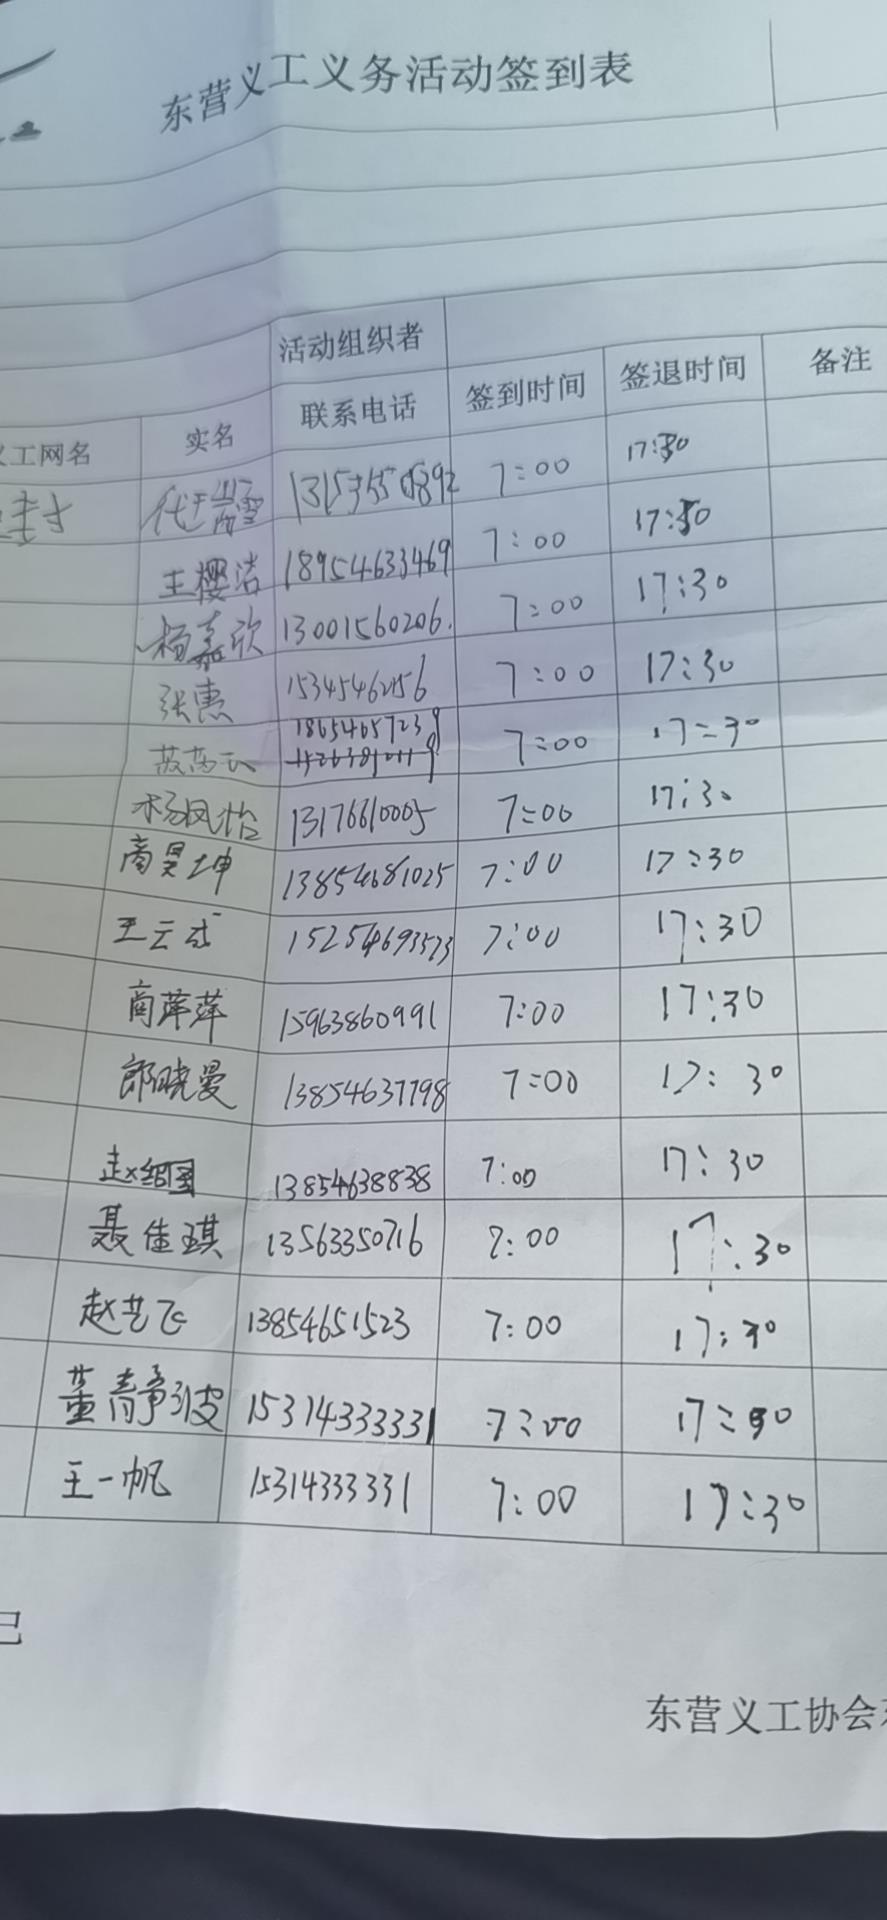 东营义工义务活动签到表
活动组织者
义工网名 实名 联系电话 签到时间 签退时间 备注
7:00 17:30
王樱洁 18954633469 7:00 17:30
杨嘉欣 13001560206. 7:00 17:30
张惠 7:00 17:30
18654657239 7:00 17:30
杨凤怡 13176610005 7:00 17:30
商昊坤 13854681025 7:00 17:30
王云 15254693523 7:00 17:30
商萍萍 15963860991 7:00 17:30
郎晓曼 13854637798 7:00 17:30
赵 13854638838 7:00 17:30
聂佳琪 13563350716 7:00 17:30
赵艺飞 13854651523 7:00 17:30
董静波 15314333331 7:00 17:30
王一帆 15314333331 7:00 17:30
东营义工协会